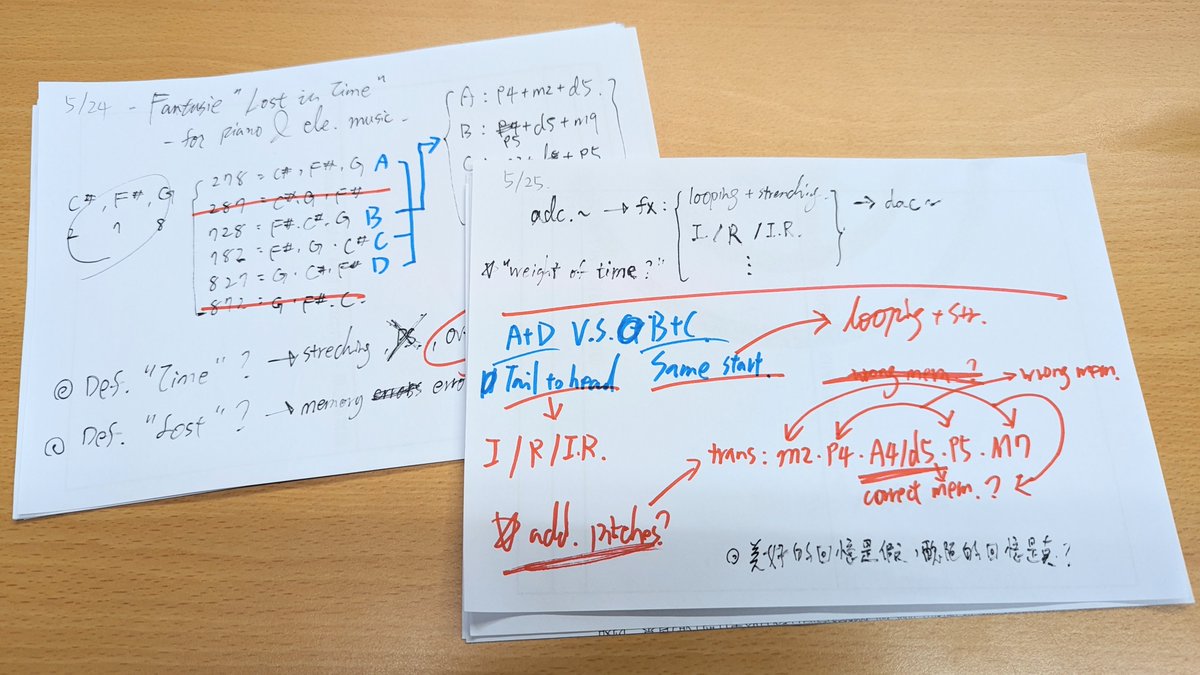 5/24 - Fantasie "Lost in Time"
- for piano & ele. music -
C#, F#, G
2 7 8
278 = C#, F#, G A
287 = C#, G, F#
728 = F#. C#. G B
782 = F#, G. C# C
827 = G. C#, F# D
872 = G. F#. C.
A: P4 + m2 + d5.
B: P4 + d5 + m9
P5
C: + P5
◎ Def. "Time"? → streching,
◎ Def. "Lost"? → memory errors
5/25.
adc.~ → fx: looping + strenching. → dac~
I. / R / I.R.
⋮
"weight of time?"
A+D V.S. B+C. → looping + str.
Tail to head Same start.
↓
I / R / I.R.
wrong mem? → wrong mem.
trans: m2 . P4 . A4/d5 . P5 . M7
correct mem.?
add. pitches?
◎ 美好的回憶是假,醜陋的回憶是真?